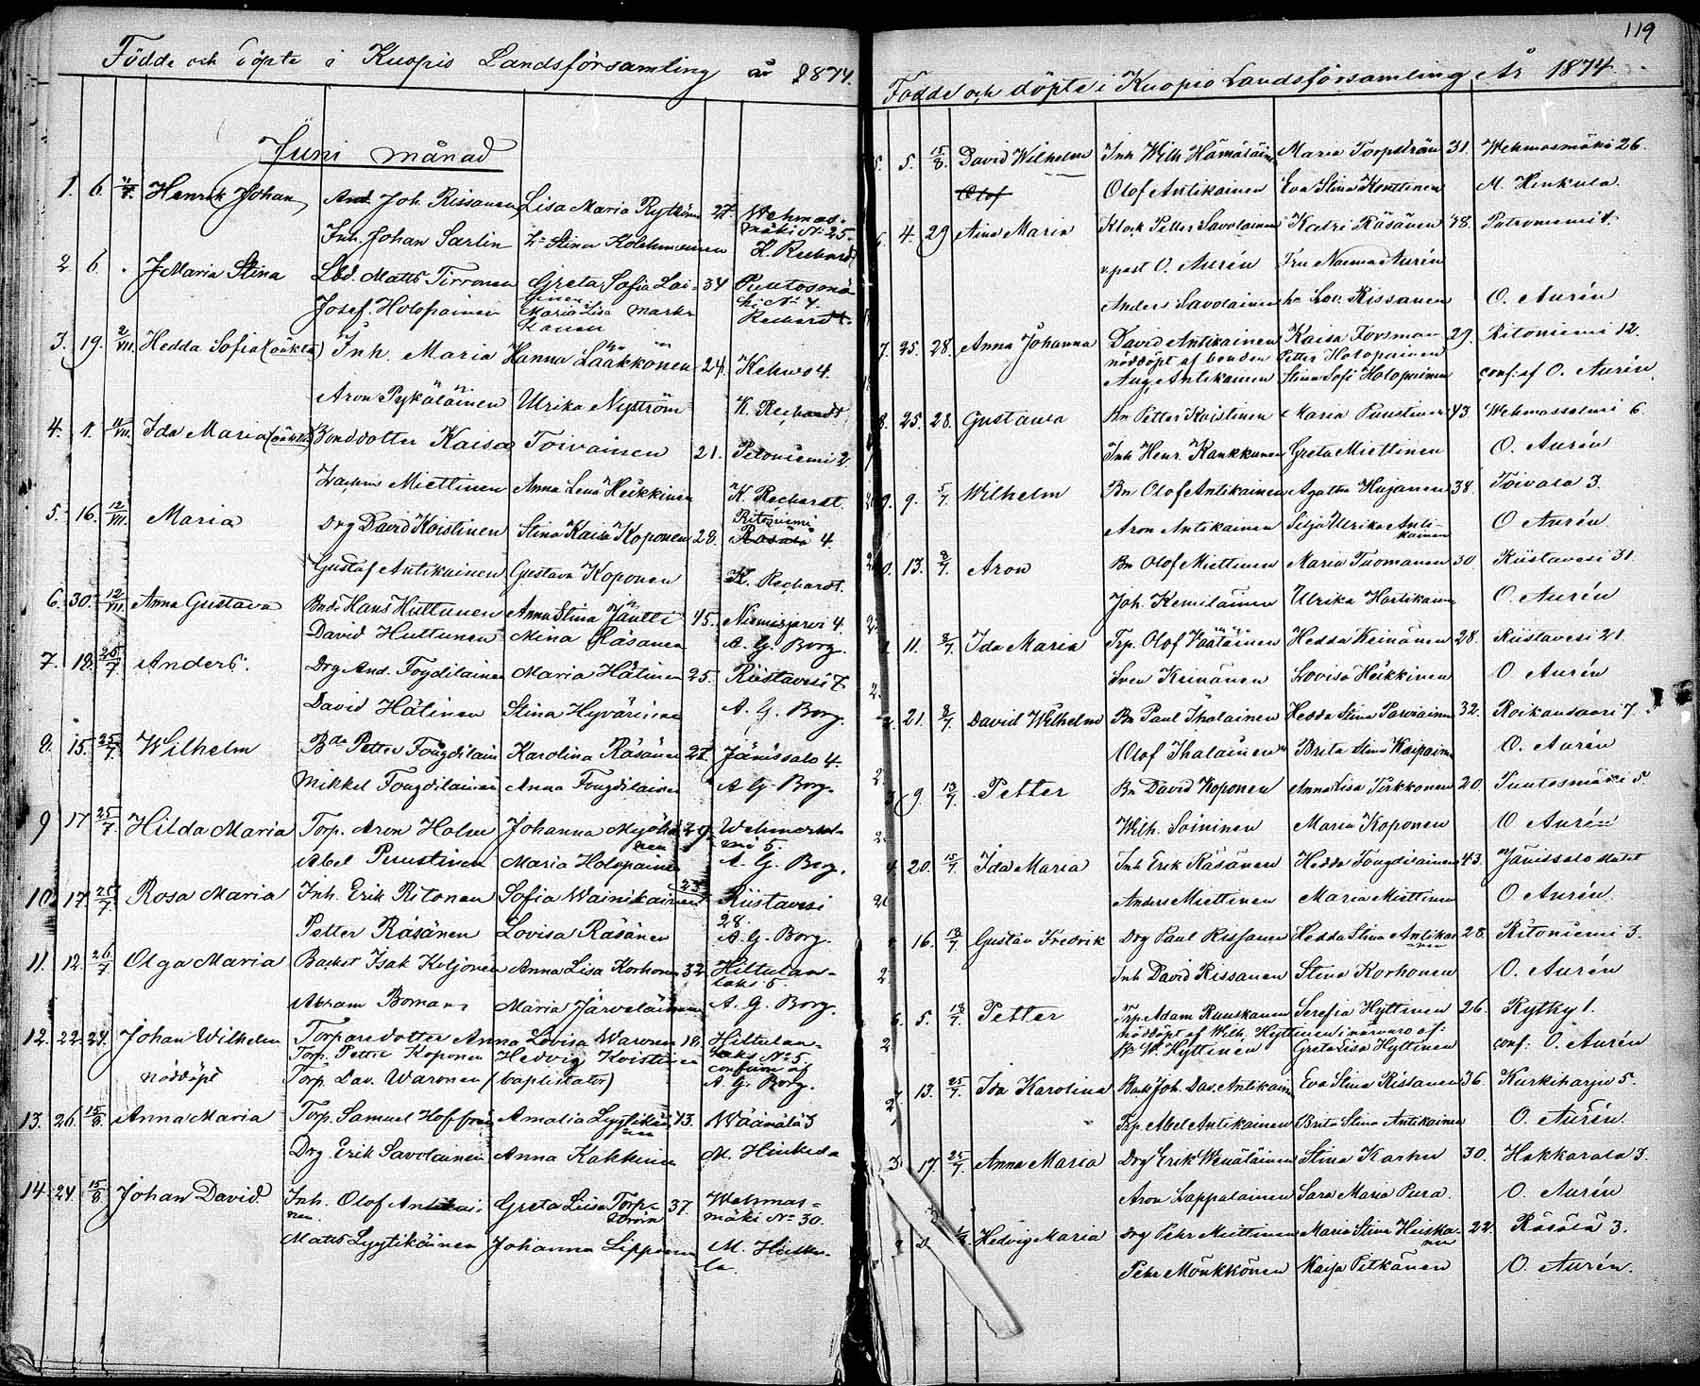 119
Födde och döpte i Kuopio Landsförsamling år 1874.
Juni månad
1. 6. Henrik Johan And. Joh. Rissanen Lisa Maria 27. Wehmas-
mäki No 25.
Inh. Johan Sarlin Stina Kolehmainen K. Rechardt
2. 6. Maria Stina Matts Tirronen Greta Sofia Lai- 34 Puutosmä
ki No 4.
Josef Holopainen Maria Lisa Mark-
kanen Rechardt
3. 19. 2/VII. Hedda Sofia (oäkta) Inh. Maria Hanna Laakkonen 24. Kehvo 4.
Aron Pykäläinen Ulrika Nyström K. Rechardt
4. 1. Ida Maria (oäkta) Bonddotter Kaisa Toivainen 21. Petoniemi 2
Miettinen Anna Lena Heikkinen K. Rechardt
5. 16. 12/VII. Maria Drg David Koistinen Stina Kaisa Koponen 28. Ritoniemi 4.
Gustaf Antikainen Gustava Koponen K. Rechardt.
6. 30. 12/VII. Anna Gustava Hans Huttunen Anna Stina Jäntti 45. Niemisjärvi 4.
David Huttunen Mina Räsänen A. G. Borg.
7. 18. 25/7 Anders. Drg And. Fogdilainen Maria Hätinen 25. Riistavesi 7
David Hätinen Stina Hyvärinen A. G. Borg.
8. 15. 25/7. Wilhelm Petter Fougdilain Karolina Räsänen 27 Jänissalo 4.
Mikkel Fougdilainen Anna Fougdilainen A. G. Borg.
9 17 25/7. Hilda Maria Torp. Aron Holm Johanna 29. Wehmersal-
mi 5.
Abel Puustinen Maria Holopainen A. G. Borg.
10. 17. Rosa Maria Inh. Erik Ritonen Sofia Wainikainen 23 Riistavesi
28.
Petter Räsänen Lovisa Räsänen A. G. Borg.
11. 12. 26/7 Olga Maria Isak Keljonen Anna Lisa Korhonen 32. Hiltulan-
laks 5.
Abram Boman Maria Järveläinen A. G. Borg.
12. 22. 24. Johan Wilhelm Torparedotter Anna Lovisa Waronen 18. Hiltulan-
laks No 5
nöddöpt Torp. Petter Koponen Hedvig Koistinen
Torp. Dav. Waronen (baptisator) confirm af
A. G. Borg.
13. 26. 15/8 Anna Maria Torp. Samuel Hoffrén Amalia Lyytikäi-
nen 43. Wäänälä 3
Drg. Erik Savolainen Anna Kakkinen M. Hinkula
14. 24 15/8 Johan David Inh. Olof Antikai-
nen Greta Lisa Torp-
ström 37. Wehmas-
mäki No 30.
Matts Lyytikäinen Johanna Lipponen M. Hinku-
la.
Födde och döpte i Kuopio Landsförsamling År 1874
5. 15/8. David Wilhelm Inh Wilh Hämäläinen Maria Torpström 31. Wehmasmäki 26.
Olof Olof Antikainen Eva Stina Konttinen M. Hinkula.
4. 29 Aina Maria Klock Petter Savolainen Katri Räsänen 48. Patroniemi
v. past O. Aurén Fru Naema Aurén
Anders Savolainen Rissanen O. Aurén
7. 25. 28. Anna Johanna David Antikainen Kaisa Forsman 29. Ritoniemi 12.
nöddöpt af bonden Petter Holopainen
Aug. Antikainen Stina Sofi Holopainen conf: af O. Aurén.
8. 25. 28. Gustava Bn Petter Koistinen Maria Puustinen 43. Wehmassalmi 6.
Inh Henr. Kankkunen Greta Miettinen O. Aurén
9. 5/7 Wilhelm Bn Olof Antikainen Agatha Hujanen 38. Toivala 3.
Aron Antikainen Silja Ulrika Anti-
kainen O Aurén.
13. 8/7. Aron Bn Olof Miettinen Maria Tuomanen 30 Riistavesi 31.
Joh. Kemiläinen Ulrika Hartikainen O. Aurén
11. 8/7. Ida Maria Trp. Olof Väätäinen Hedda Keinänen 28. Riistavesi 21
Sven Keinänen Lovisa Heikkinen O Aurén
21. 8/7. David Wilhelm Bn Paul Ihalainen Hedda Stina Parviainen 32. Roikansaari 7.
Olof Ihalainen Brita Stina O. Aurén
9. 13/7. Petter Bn David Koponen Anna Lisa Tirkkonen 20. Puutosmäki 5
Wilh. Soininen Maria Koponen O Aurén
20. 15/7 Ida Maria Inh Erik Räsänen Hedda Fougdiainen 43. Jänissalo
Anders Miettinen Maria Miettinen O Aurén.
16. 18/7 Gustav Fredrik Drg Paul Rissanen Hedda Stina Antikai-
nen 28. Ritoniemi 3.
Inh David Rissanen Stina Korhonen O. Aurén
5. 18/7. Petter Trp. Adam Ruuskanen Serefia Hyttinen 26. Kytky 1.
nöddöpt af Wilh. Hyttinen i närvaro af:
Bn W. Hyttinen Greta Lisa Hyttinen conf: O. Aurén
13. 25/7. Ida Karolina Joh. Dav. Antikain Eva Stina Rissanen 36. Kurkiharju 5.
Trp. Abel Antikainen Brita Stina Antikainen O. Aurén.
17. 25/7. Anna Maria Drg Erik Wenäläinen Stina Karhu 30. Hakkarala 3.
Aron Lappalainen Sara Maria Pura. O. Aurén
Hedvig Maria Drg Pehr Miettinen Maria Stina Heiska-
nen 22. Räsälä 3.
Pehr Mönkkönen Kaija Pitkänen O. Aurén.